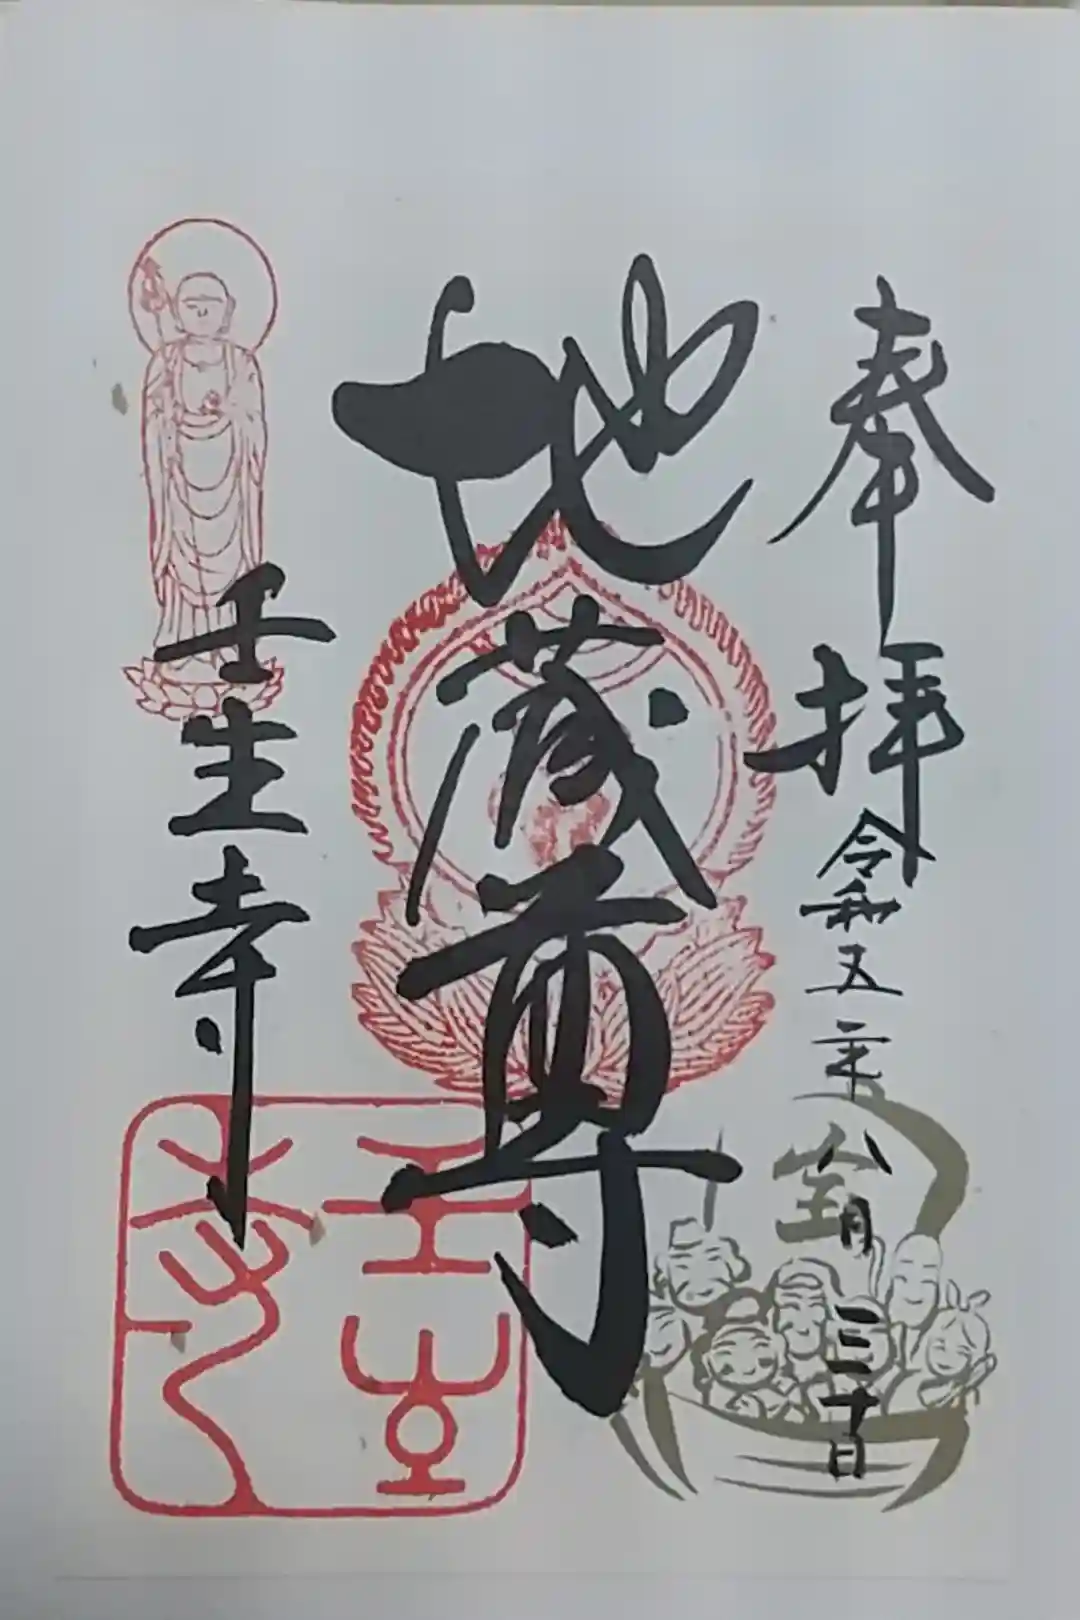 奉拝
令和五年
八月三十日
地蔵尊
壬生寺
宝